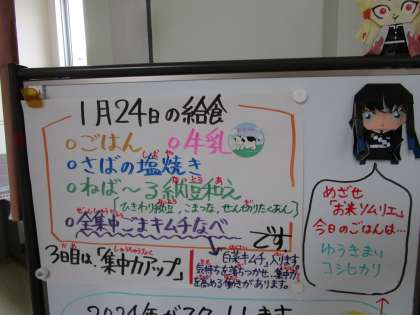 1月24日の給食
○ごはん ○牛乳
○さばの塩焼き
しお や
○ねば～る納豆和え
なっとう あ
[ひきわり納豆、こまつな、せんぎりたくあん]
○全集中ごまキムチなべ
ぜんしゅうちゅう
です!
3日目は、「集中力アップ」
白菜キムチ入ります
気持ちを落ちつかせ、集中力
を高める働きがあります。
めざせ
「お米ソムリエ」
今日のごはんは…
ゆうきまい
コシヒカリ